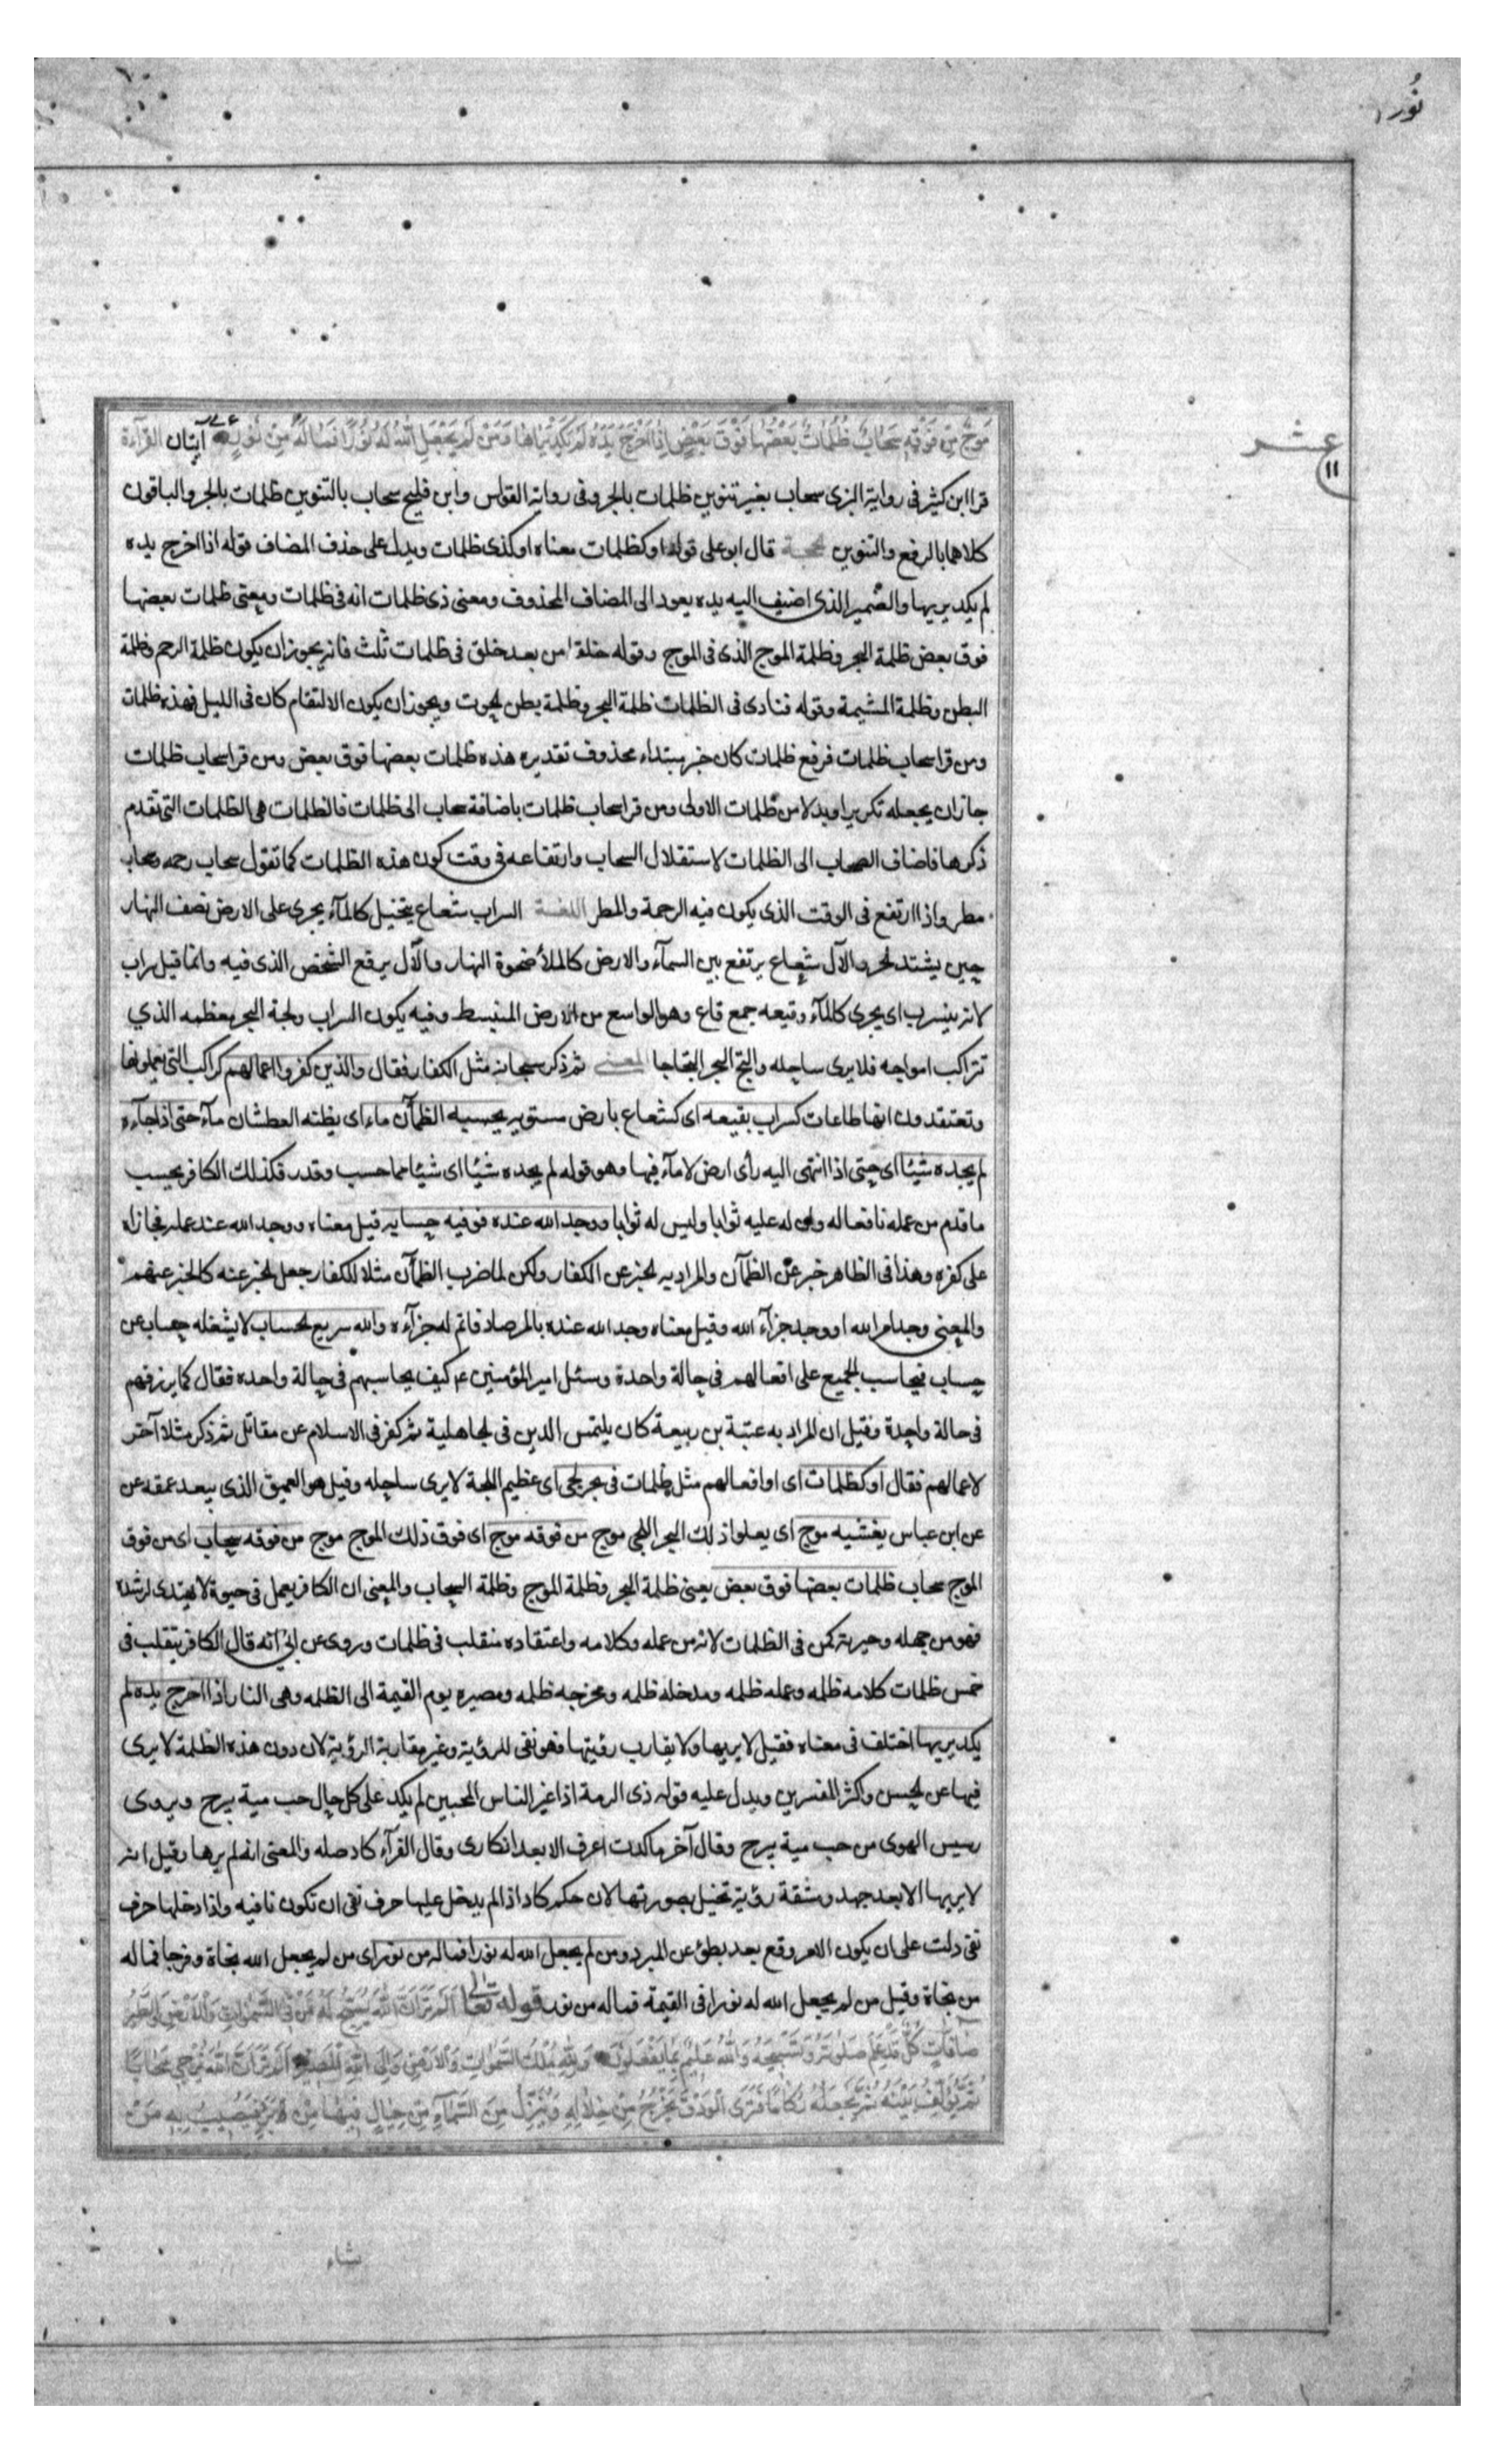 نُور
عشر
١١
مَوْجٌ مِنْ فَوْقِهِ سَحَابٌ ظُلُمَاتٌ بَعْضُهَا فَوْقَ بَعْضٍ اِذَا اَخْرَجَ يَدَهُ لَمْ يَكَدْ يَرَاهَا وَمَنْ لَمْ يَجْعَلِ اللهُ لَهُ نُورًا فَمَا لَهُ مِنْ نُورٍ آيتان القرآءة
قرا ابن كثير فى رواية البزى سحاب بغير تنوين ظلمات بالجر وفى رواية القواس وابن فليح سحاب بالتنوين ظلمات بالجر والباقون
كلاهما بالرفع والتنوين الحجة قال ابو على قوله اوكظلمات معناه اوكذى ظلمات ويدل على حذف المضاف قوله اذا اخرج يده
لم يكد يريها والضمير الذى اضيف اليه يده يعود الى المضاف المحذوف ومعنى ذى ظلمات انه فى ظلمات ومعنى ظلمات بعضها
فوق بعض ظلمة البحر وظلمة الموج الذى فى الموج وقوله خلقا من بعد خلق فى ظلمات ثلث فانه يجوز ان يكون ظلمة الرحم وظلمة
البطن وظلمة المشيمة وقوله فنادى فى الظلمات ظلمة البحر وظلمة بطن الحوت ويجوز ان يكون الالتقام كان فى الليل فهذه ظلمات
ومن قرا سحاب ظلمات فرفع ظلمات كان خبر مبتداء محذوف تقديره هذه ظلمات بعضها فوق بعض ومن قرا سحاب ظلمات
جاز ان يجعله تكريرا وبدلا من ظلمات الاولى ومن قرا سحاب ظلمات باضافة سحاب الى ظلمات فالظلمات هى الظلمات التى تقدم
ذكرها فاضاف السحاب الى الظلمات لاستقلال السحاب وارتفاعه فى وقت كون هذه الظلمات كما تقول سحاب رحمه وسحاب
مطر واذا ارتفع فى الوقت الذى يكون فيه الرحمة والمطر اللغة السراب شعاع يتخيل كالمآء يجرى على الارض نصف النهار
حين يشتد الحر والآل شعاع يرتفع بين السمآء والارض كالملأ ضحوة النهار والآل يرفع الشخص الذى فيه وانما قيل سراب
لانه ينسرب اى يجرى كالمآء وقيعه جمع قاع وهو الواسع من الارض المنبسط وفيه يكون السراب ولجة البحر معظمه الذي
تتراكب امواجه فلا يرى ساحله والتج البحر التجاجا المعنى ثم ذكر سبحانه مثل الكفار فقال والذين كفروا اعمالهم كراكب التى يعملونها
وتعتقدون انها طاعات كسراب بقيعه اى كشعاع بارض مستويه يحسبه الظمآن ماء اى يظنه العطشان مآء حتى اذا جآءه
لم يجده شيئا اى حتى اذا انتهى اليه رأى ارض لا مآء فيها وهو قوله لم يجده شيئا اى شيئا مما حسب وقدر فكذلك الكافر يحسب
ما قدم من عمله نافعا له وان له عليه ثوابا وليس له ثوابا ووجد الله عنده فوفيه حسابه قيل معناه ووجد الله عند عمله فجازاه
على كفره وهذا فى الظاهر خبر عن الظمآن والمراد به الخبر عن الكفار ولكن لما ضرب الظمآن مثلا للكفار جعل الخبر عنه كالخبر عنهم
والمعنى وجد امر الله او وجد جزآء الله وقيل معناه وجد الله عنده بالمرصاد فاتم له جزآءه والله سريع الحساب لا يشغله حساب عن
حساب فيحاسب الجميع على افعالهم فى حالة واحدة وسئل امير المؤمنين ع كيف يحاسبهم فى حالة واحده فقال كما يرزقهم
فى حالة واحدة وقيل ان المراد به عتبة بن ربيعة كان يلتمس الدين فى الجاهلية ثم كفر فى الاسلام عن مقاتل ثم ذكر مثلا آخر
لاعمالهم فقال اوكظلمات اى او افعالهم مثل ظلمات فى بحر لجى اى عظيم اللجة لا يرى ساحله وقيل هو العميق الذى يبعد عمقه عن
عن ابن عباس يغشيه موج اى يعلوا ذلك البحر اللجى موج من فوقه موج اى فوق ذلك الموج موج من فوقه سحاب اى من فوق
الموج سحاب ظلمات بعضها فوق بعض يعنى ظلمة البحر وظلمة الموج وظلمة السحاب والمعنى ان الكافر يعمل فى حيوة لا يهتدى لرشده
فهو من جهله وحيرته كمن فى الظلمات لانه من عمله وكلامه واعتقاده منقلب فى ظلمات وروى عن ابى انه قال الكافر يتقلب فى
خمس ظلمات كلامه ظلمه وعمله ظلمه ومدخله ظلمه ومخرجه ظلمه ومصيره يوم القيمة الى الظلمه وهى النار اذا اخرج يده لم
يكد يريها اختلف فى معناه فقيل لا يريها ولا يقارب رؤيتها فهو نفى للرؤية وغير مقاربة الرؤية لان دون هذه الظلمة لا يرى
فيها عن الحسن واكثر المفسرين ويدل عليه قوله ذى الرمة اذا غير الناس المحبين لم يكد على كل حال حب مية يبرح ويروى
رسيس الهوى من حب مية يبرح وقال آخر ما كدت اعرف الا بعد انكارى وقال القرآء كاد صله والمعنى انه لم يرها وقيل انه
لا يريها الا بعد جهد ومشقة رؤية تخيل بصورتها لان حكم كاد اذا لم يدخل عليها حرف نفى ان تكون نافيه واذا دخلها حرف
نفى دلت على ان يكون الامر وقع بعد بطئ عن المبرد ومن لم يجعل الله له نورا فماله من نور اى من لم يجعل الله نجاة وفرجا فماله
من نجاة وقيل من لم يجعل الله له نورا فى القيمة فماله من نور قوله تعالى اَلَمْ تَرَ اَنَّ اللهَ يُسَبِّحُ لَهُ مَنْ فِى السَّمٰوَاتِ وَالْاَرْضِ وَالطَّيْرُ
صَافَّاتٍ كُلٌّ قَدْ عَلِمَ صَلٰوتَهُ وَتَسْبِيحَهُ وَاللهُ عَلِيمٌ بِمَا يَفْعَلُونَ وَلِلهِ مُلْكُ السَّمٰوَاتِ وَالْاَرْضِ وَاِلَى اللهِ الْمَصِيرُ اَلَمْ تَرَ اَنَّ اللهَ يُزْجِى سَحَابًا
ثُمَّ يُؤَلِّفُ بَيْنَهُ ثُمَّ يَجْعَلُهُ رُكَامًا فَتَرَى الْوَدْقَ يَخْرُجُ مِنْ خِلَالِهِ وَيُنَزِّلُ مِنَ السَّمَآءِ مِنْ جِبَالٍ فِيهَا مِنْ بَرَدٍ فَيُصِيبُ بِهِ مَنْ
يشاء